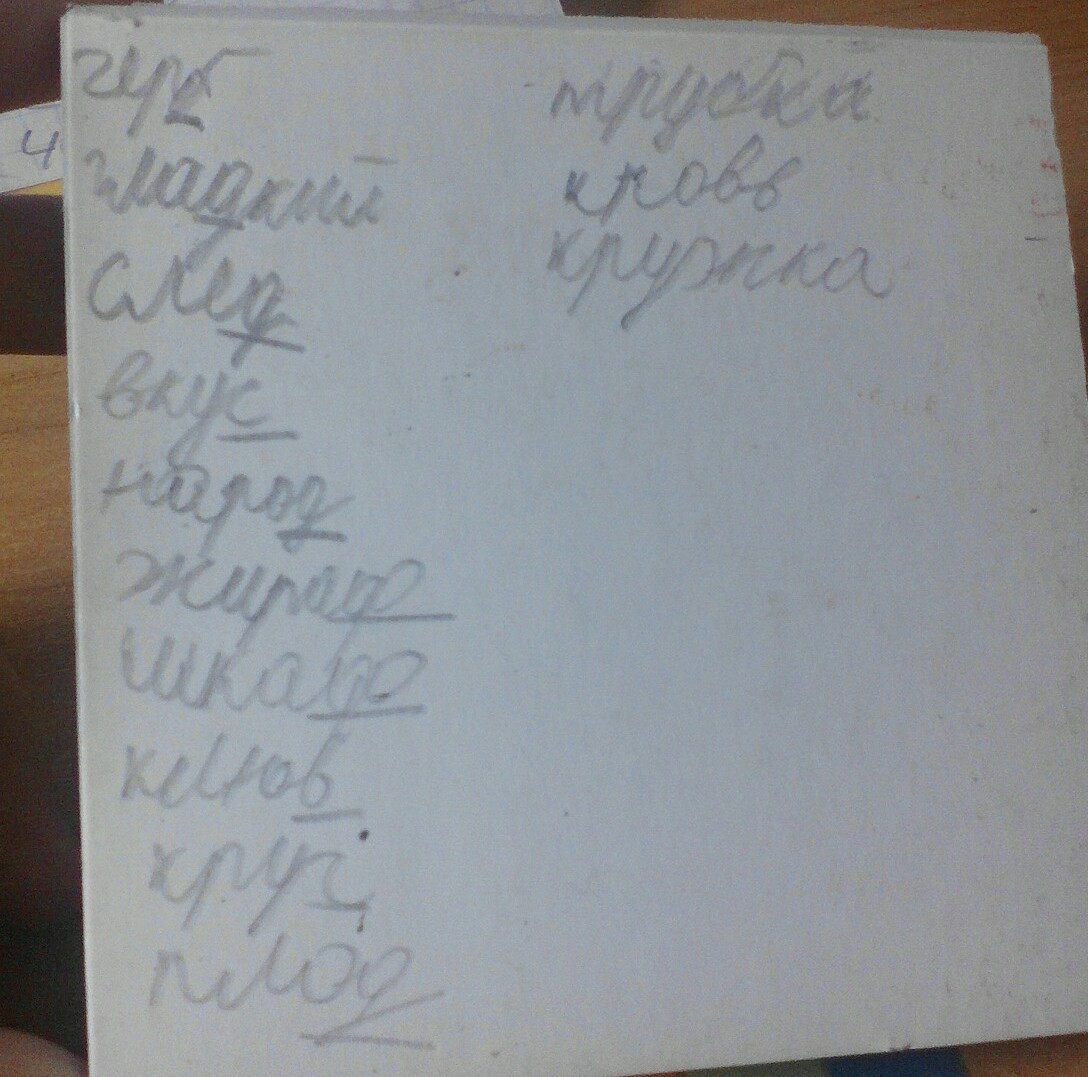 4
герб
гладкий
след
вкус
народ
жираф
шкаф
клюв
круг
плод
трубка
кровь
кружка